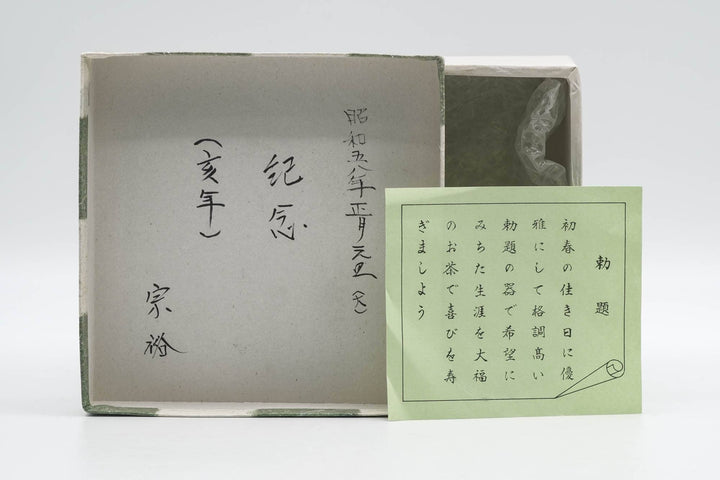 昭和五八年正月元旦
紀念
(亥年)
宗裕
勅題
初春の佳き日に優
雅にして格調高い
勅題の器で希望に
みちた生涯を大福
のお茶で喜びを寿
ぎましよう